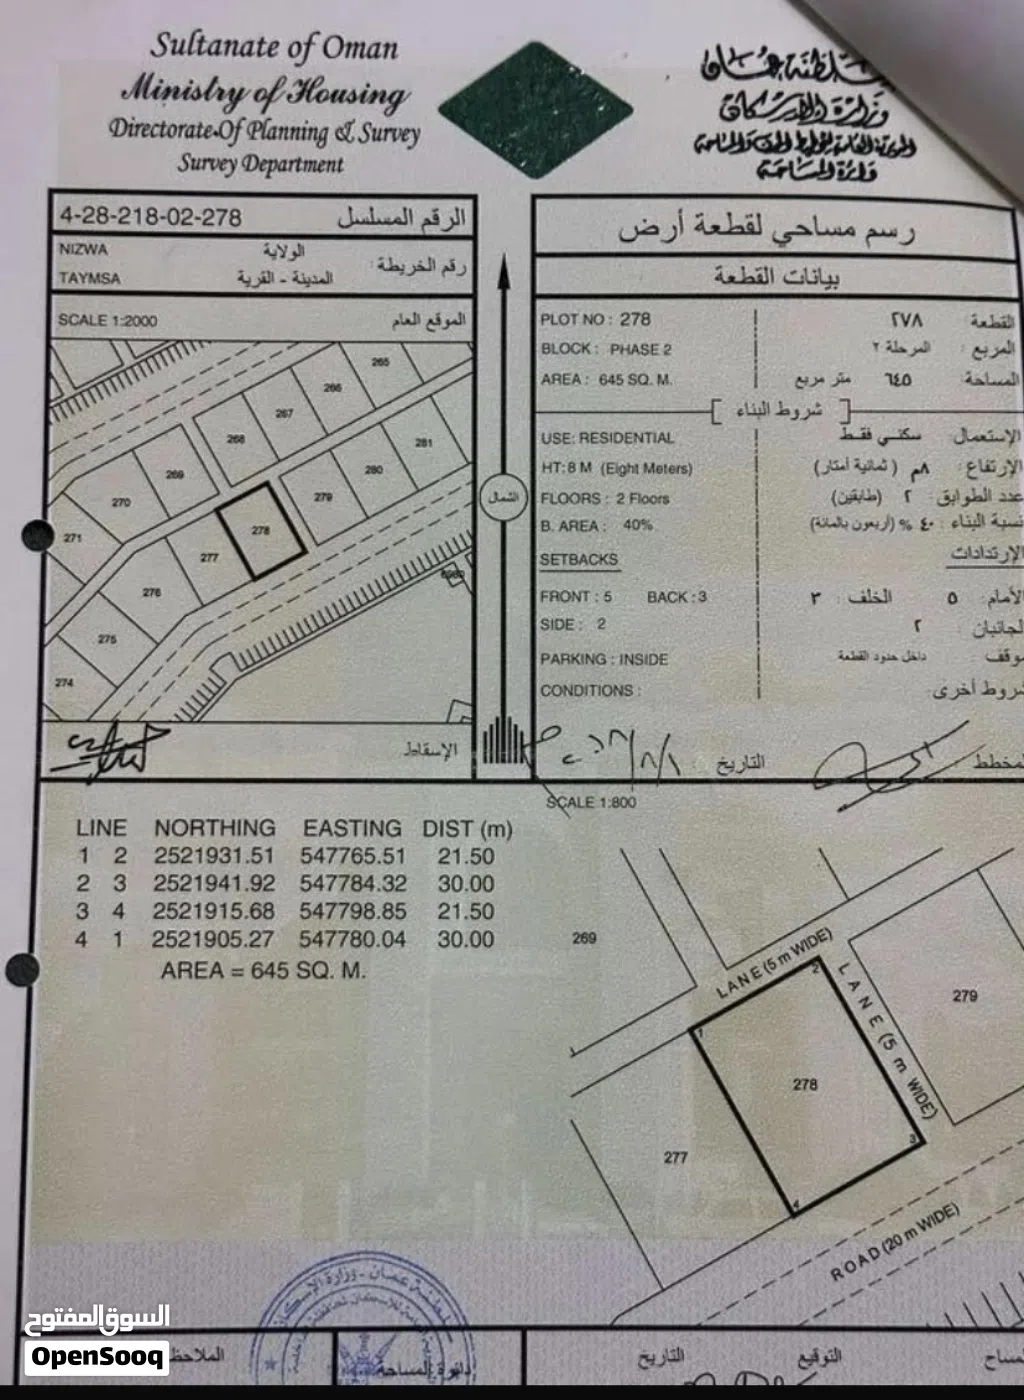 Sultanate of Oman
Ministry of Housing
Directorate Of Planning & Survey
Survey Department
سلطنة عمان
وزارة الإسكان
المديرية العامة للتخطيط والمساحة
دائرة المساحة
4-28-218-02-278 الرقم المسلسل
NIZWA الولاية
رقم الخريطة :
TAYMSA المدينة - القرية
SCALE 1:2000 الموقع العام
265
266
267
268
269
270
271
281
280
279
278
277
276
275
274
الشمال
الإسقاط
رسم مساحي لقطعة أرض
بيانات القطعة
PLOT NO : 278 القطعة : ٢٧٨
BLOCK : PHASE 2 المربع : المرحلة ٢
AREA : 645 SQ. M. المساحة : ٦٤٥ متر مربع
شروط البناء
USE: RESIDENTIAL الإستعمال : سكني فقط
HT: 8 M (Eight Meters) الإرتفاع : ٨م ( ثمانية أمتار)
FLOORS : 2 Floors عدد الطوابق : ٢ (طابقين)
B. AREA : 40% نسبة البناء : ٤٠ % (أربعون بالمائة)
SETBACKS الإرتدادات
FRONT : 5 BACK : 3 الأمام : ٥ الخلف : ٣
SIDE : 2 الجانبان : ٢
PARKING : INSIDE موقف : داخل حدود القطعة
CONDITIONS : شروط أخرى
المخطط
التاريخ :
SCALE 1:800
LINE NORTHING EASTING DIST (m)
1 2 2521931.51 547765.51 21.50
2 3 2521941.92 547784.32 30.00
3 4 2521915.68 547798.85 21.50
4 1 2521905.27 547780.04 30.00
AREA = 645 SQ. M.
269
LANE (5 m WIDE)
LANE (5 m WIDE)
279
1
2
3
4
278
277
ROAD (20 m WIDE)
السوق المفتوح
OpenSooq
دائرة المساحة
التاريخ
التوقيع